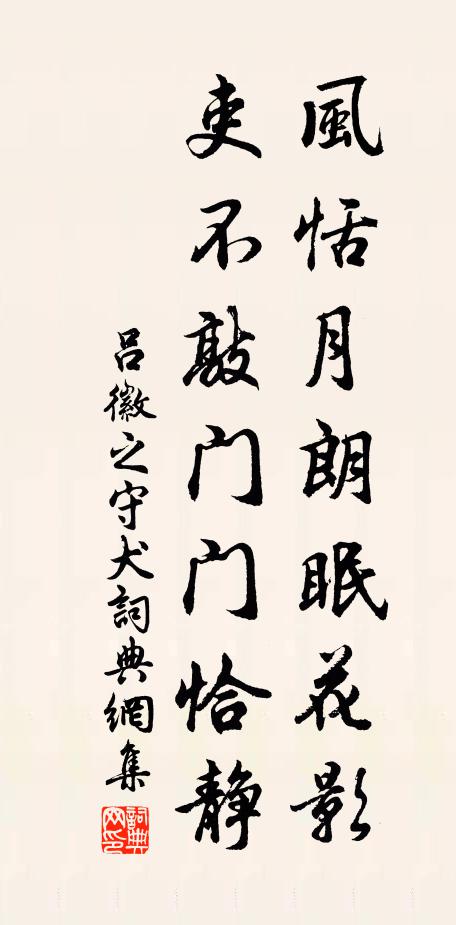 風恬月朗眠花影
吏不敲门门恰静
吕徽之守犬詞典網集
詞典網印